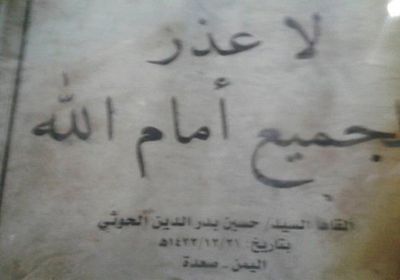 لا عذر
لجميع أمام الله
ألقاها السيد/ حسين بدر الدين الحوثي
بتاريخ: ١٤٢٢/١٢/٢١هـ
اليمن - صعدة